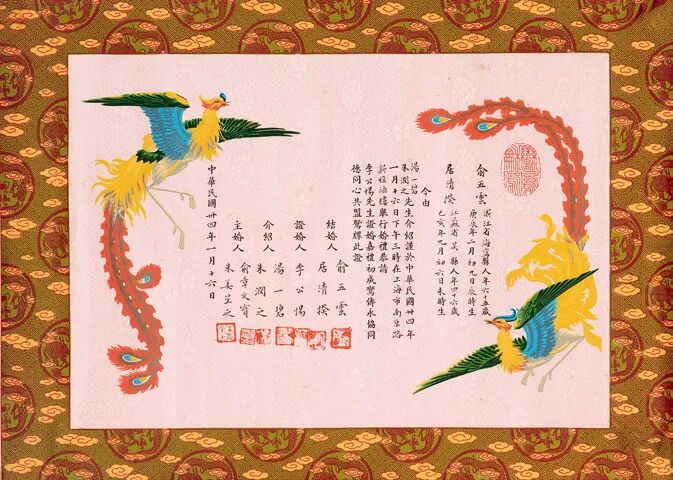 俞五雲
浙江省海寧縣人年六十五歲
庚辰年二月初九日辰時生
居清揆
江苏省吴縣人年四十六歲
己亥年九月初六日未時生
今由
湯一碧
朱潤之先生介紹謹於中華民國卅四年
一月十六日下午三時在上海市南京路
新雅酒樓舉行婚禮恭請
李公惕先生證婚嘉禮初成鴛儔永協同
德同心共盟鴛牒此證
結婚人
俞五雲
居清揆
證婚人
李公惕
介紹人
湯一碧
朱潤之
主婚人
俞章文寳
朱姜星之
中華民國卅四年一月十六日